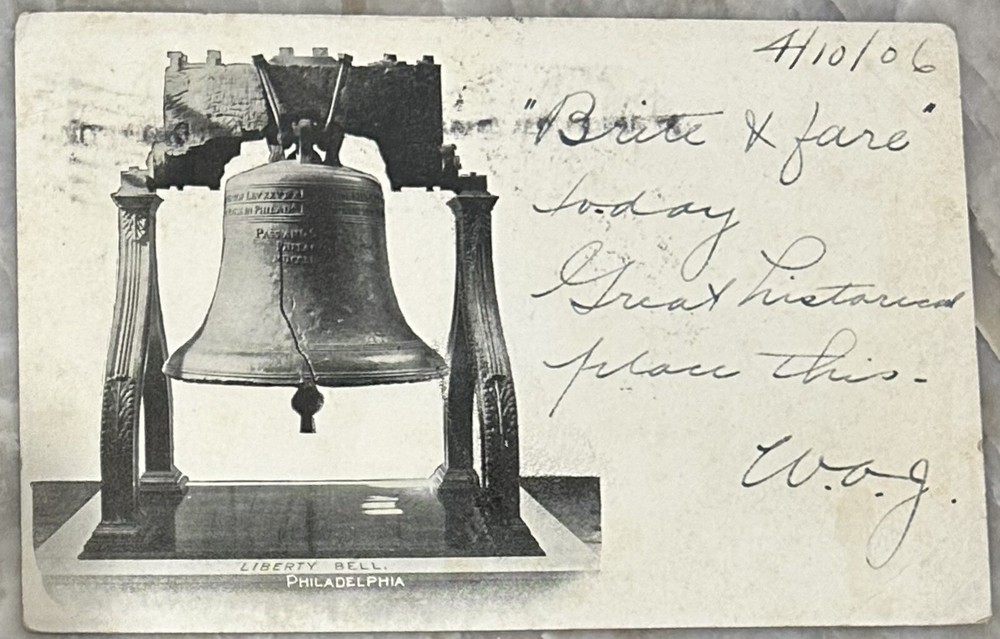 4/10/06
"Brite & fare"
to-day
Great historical
place this-
W.O.J.
PASS AND S
LIBERTY BELL.
PHILADELPHIA